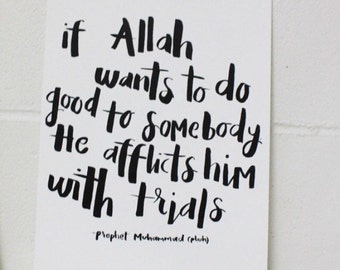 if Allah
wants to do
good to somebody
He afflicts him
with trials
- Prophet Muhammad (pbuh)